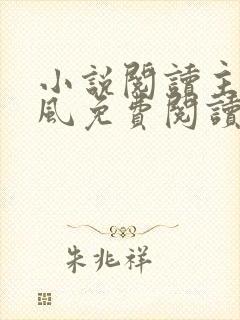 小說閱讀主
風免費閱讀
朱兆祥